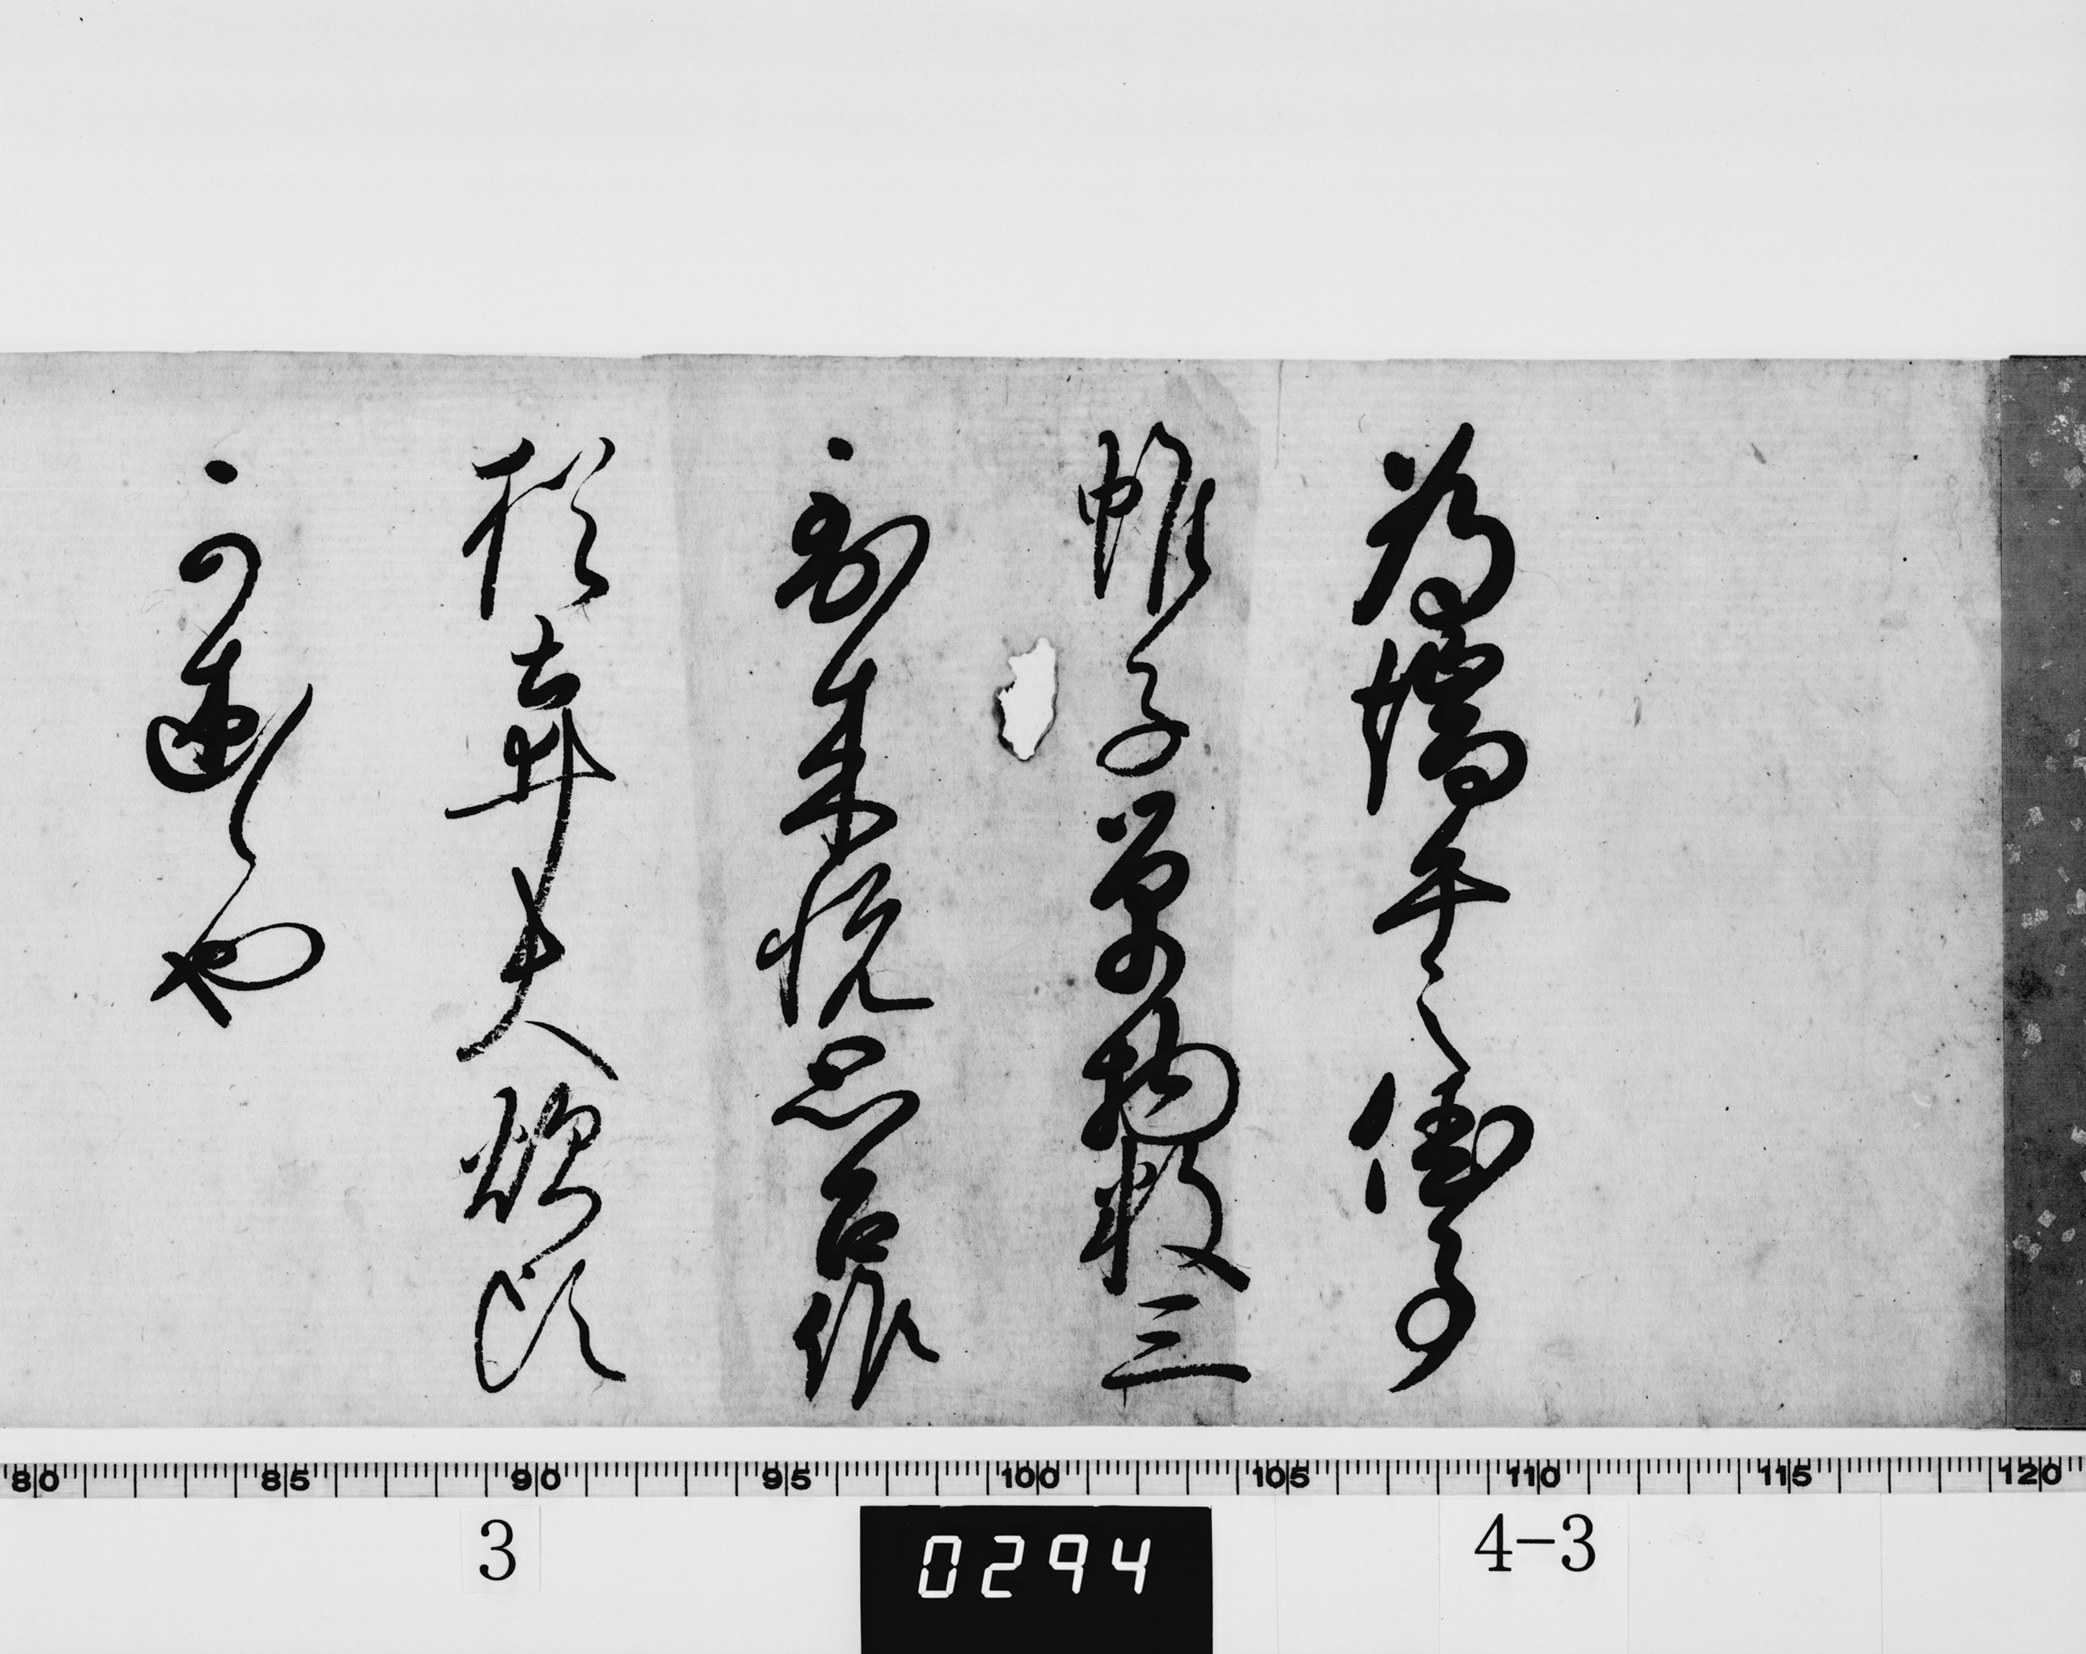 為端午之
帷子単物数三
到来悦思召候
猶土井大炊頭
可述候也
80 85 90 95 100 105 110 115 120
3
0294
4-3